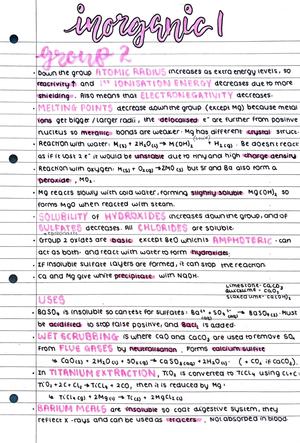 inorganic 1
group 2
• Down the group ATOMIC RADIUS increases as extra energy levels, so
reactivity↑ and 1st IONISATION ENERGY decreases due to more
shielding. Also means that ELECTRONEGATIVITY decreases.
• MELTING POINTS decrease down the group (except Mg) because metal
ions get bigger / larger radii, the delocalised e⁻ are further from positive
nucleus so metallic bonds are weaker. Mg has different crystal struc.
• Reaction with water: M(s) + 2H₂O(l) → M(OH)₂ + H₂(g). Be doesn't react
as if it loses 2e⁻ it would be unstable due to tiny and high charge density
• Reaction with oxygen: M(s) + O₂(g) → 2MO(s) but Sr and Ba also form a
peroxide, MO₂.
• Mg reacts slowly with cold water, forming slightly soluble Mg(OH)₂ so
forms MgO when reacted with steam.
• SOLUBILITY of HYDROXIDES increases down the group, and of
SULFATES decreases. All CHLORIDES are soluble.
+ carbonates
• Group 2 oxides are basic except BeO which is AMPHOTERIC - can
act as both - and react with water to form hydroxides.
• If insoluble sulfate layers are formed, it can stop the reaction
• Ca and Mg give white precipitate with NaOH.
limestone - CaCO₃
quicklime - CaO
slaked lime - Ca(OH)₂
USES
• BaSO₄ is insoluble so can test for sulfates: Ba²⁺ + SO₄²⁻ → BaSO₄(s). Must
be acidified to stop false positive, and BaCl₂ is added.
• WET SCRUBBING is where CaO and CaCO₃ are used to remove SO₂
from FLUE GASES by neutralisation. Forms calcium sulfite
↳ CaO(s) + 2H₂O(l) + SO₂(g) → CaSO₃(s) + 2H₂O(l). (+ CO₂ if CaCO₃).
• In TITANIUM EXTRACTION, TiO₂ is converted to TiCl₄ using Cl+C:
TiO₂ + 2C + Cl₂ → TiCl₄ + 2CO, then it is reduced by Mg:
↳ TiCl₄(g) + 2Mg(l) → Ti(s) + 2MgCl₂(l)
• BARIUM MEALS are insoluble so coat digestive system, they
reflect X-rays and can be used as tracers. Not absorbed in blood